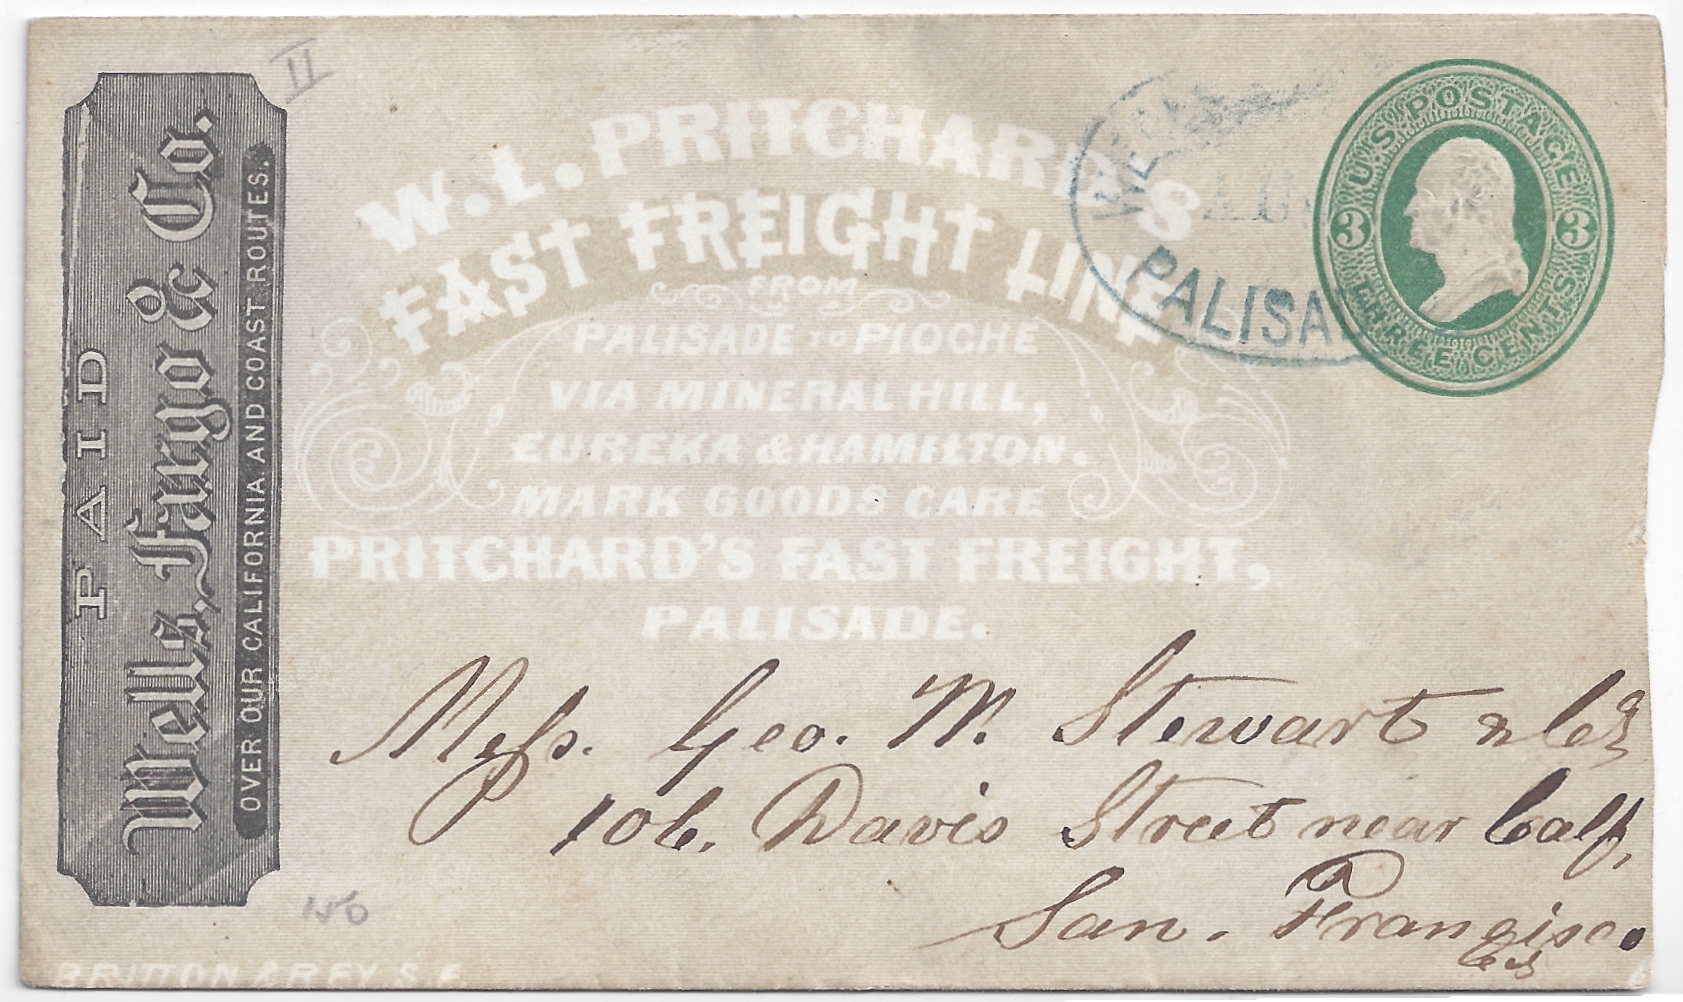 II
PAID
Wells, Fargo & Co.
OVER OUR CALIFORNIA AND COAST ROUTES.
W. L. PRITCHARD'S
FAST FREIGHT LINE
FROM
PALISADE TO PIOCHE
VIA MINERAL HILL,
EUREKA & HAMILTON.
MARK GOODS CARE
PRITCHARD'S FAST FREIGHT,
PALISADE.
AU
PALISA
U.S. POSTAGE
3 3
THREE CENTS
Mess. Geo. W. Stewart & Co
106. Davis Street near Calf,
San. Francisco
BRITTON & REY, S.F.